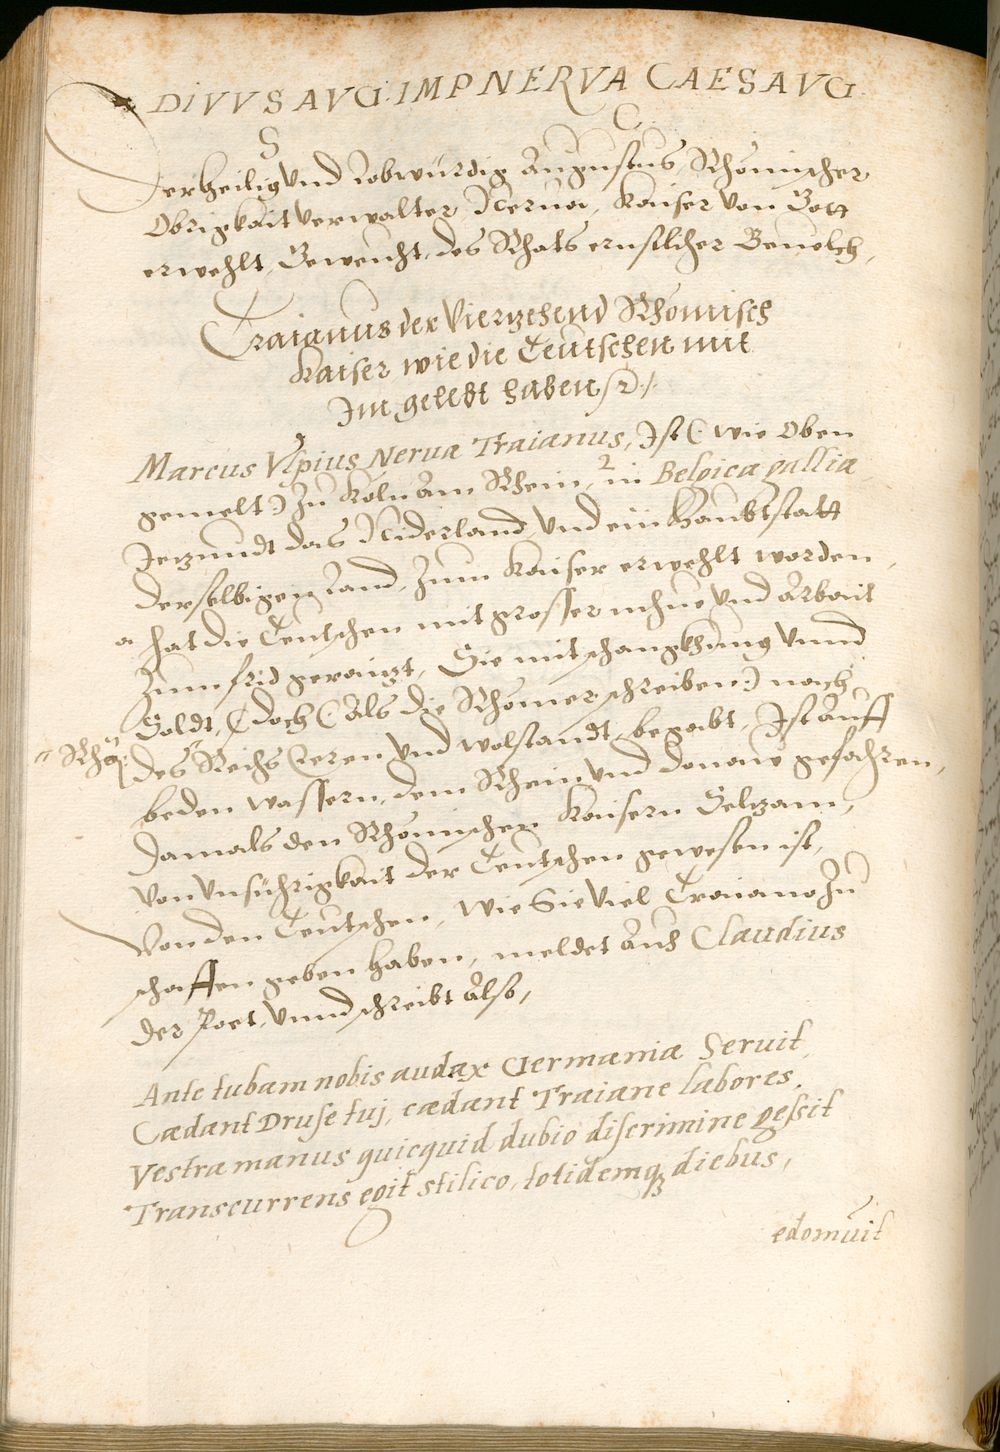 DIVVS AVG. IMP NERVA CAES AVG.
S C
Der heilig vnd Lobwürdig Augustus, Rhömischer
Obrigkait verwalter, Nerua, Kaiser von Gott
erwehlt, Geweicht, des Rhats ernstlicher Beuelch,
Traianus der Vierzehend Rhömisch
Kaiser, wie die Teutschen mit
Im gelebt haben 2./
Marcus Vlpius Nerua Traianus, Ist (: wie Oben
gemelt:) Zu Köln am Rhein, in Belgica gallia
Jetzundt das Niderland, vnd ein Haubtstatt
derselbigen Land, Zum Kaiser erwehlt worden,
a hat die Teutschen mit grosser mhüe vnd Arbait
Zum frid geraitzt, Sie mit schangkhung vnnd
Soldt, (doch (: als die Rhömer schreiben:) nach
" Rhö: des Reichs Eeren vnd wolstandt, begabt, Ist auff
beden wassern, dem Rhein vnd donaw gefahren,
damals den Rhömischen Kaisern Seltzam,
von vnführigkait der Teutschen gewesen ist,
Von den Teutschen, wie Sie viel Traiano Zu
schaffen geben haben, meldet auch Claudius
der Poet, vnnd schreibt also,
Ante tubam nobis audax Germania Seruit,
Cædant Druse tuj, cædant Traiane labores.
Vestra manus quicquid dubio discrimine gessit
Transcurrens egit stilico, totidemq3 diebus,
edomuit